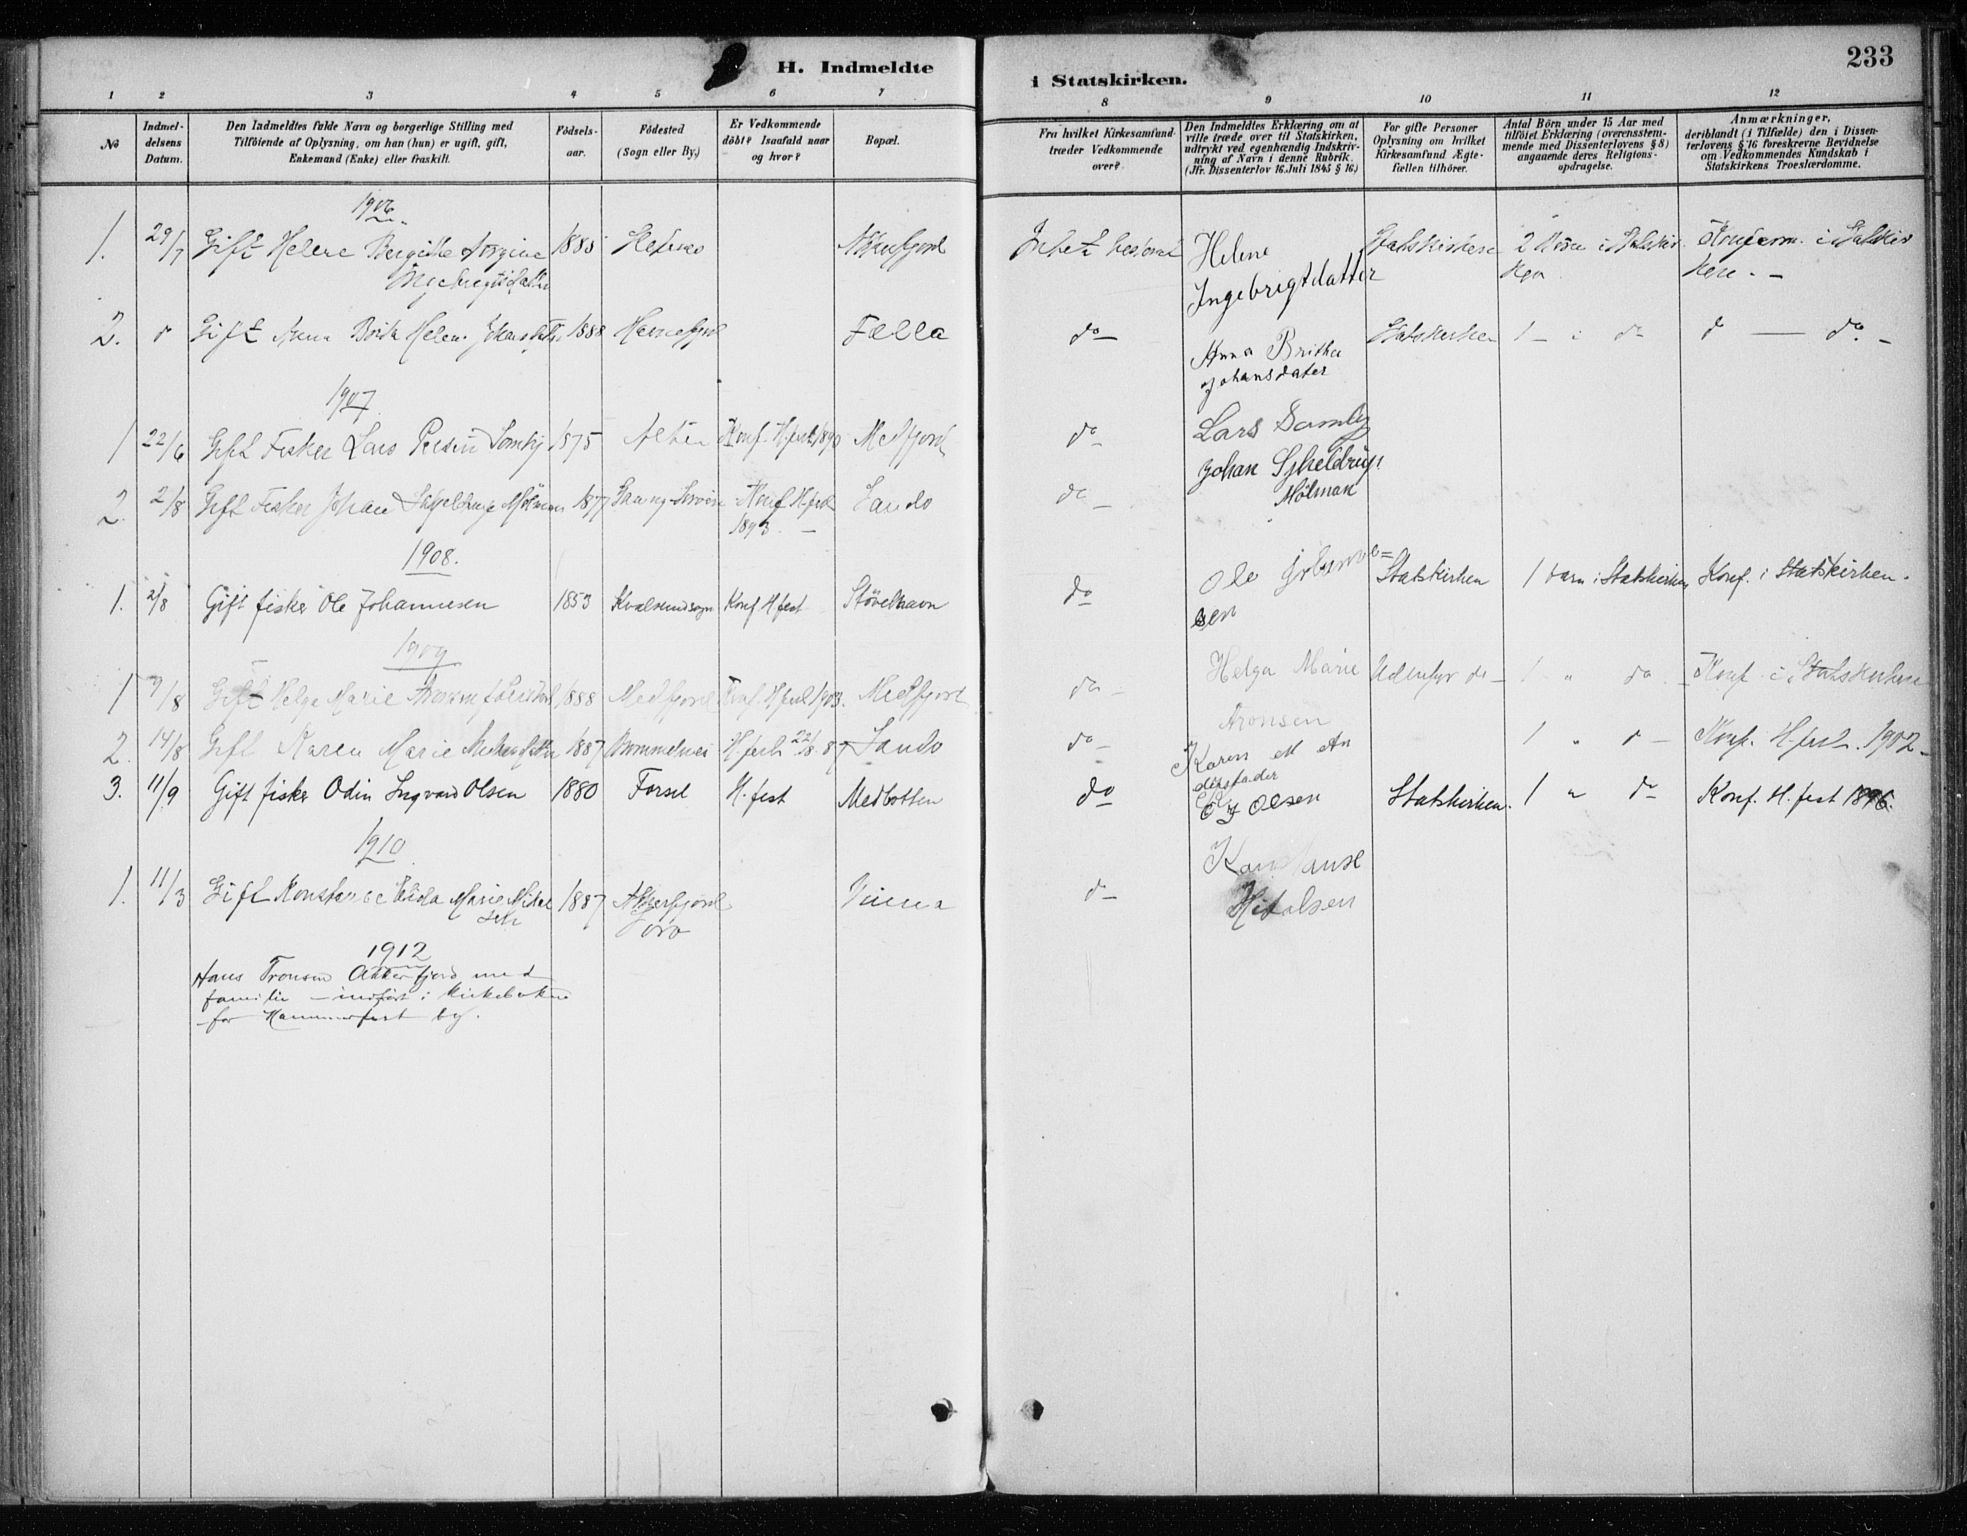 233
H. Indmeldte i Statskirken.
1 2 3 4 5 6 7 8 9 10 11 12
No
Indmel-
delsens
Datum.
Den Indmeldtes fulde Navn og borgerlige Stilling med
Tilföiende af Oplysning, om han (hun) er ugift, gift,
Enkemand (Enke) eller fraskilt.
Födsels-
aar.
Födested
(Sogn eller By.)
Er Vedkommende
döbt? Isaafald naar
og hvor?
Bopæl.
Fra hvilket Kirkesamfund
træder Vedkommende
over?
Den Indmeldtes Erklæring om at
ville træde over til Statskirken,
udtrykt ved egenhændig Indskriv-
ning af Navn i denne Rubrik.
(Jfr. Dissenterlov 16. Juli 1845 § 16.)
For gifte Personer
Oplysning om hvilket
Kirkesamfund Ægte-
fællen tilhörer.
Antal Börn under 15 Aar med
tilföiet Erklæring (overensstem-
mende med Dissenterlovens § 8)
angaaende deres Religions-
opdragelse.
Anmærkninger,
deriblandt (i Tilfælde) den i Dissen-
terlovens § 16 foreskrevne Bevidnelse
om Vedkommendes Kundskab i
Statskirkens Troeslærdomme.
1906
1. 29/7 Gift Helene Bergitte 1885 Statskirken 2 Börn i Statskir Konferm. i Statskir
ken kere. -
Helene
Ingebrigtdatter
2. Gift Anna Brita Helene 1888 Fælla do Statskirken 1 - i do d — do. -
Anna Britha
Johansdater
1907
1 22/6 Gift Fisker Lars 1875 Alten Konf. H.fest 1890 Medfjord do Lars Samby
2. 2/8 Gift Fisker Johan 1877 Konf. H.fest Sandö do Johan Sjheldrup
1893. - Mölman
1908.
1. 2/8 Gift fisker Ole Johannesen 1853 Kvalsundsogn Konf. H.fest Stövelhavn do Ole Statskirken 1 barn i Statskirken Konf. i Statskirken.
sen
1909
1 9/8 Gift Helga Marie 1888 Medfjord Konf. H.fest 1903. Medfjord do Helga Marie Udenfor do 1 " do - Konf. i Statskirken
Aronsen
2. 14/8 Gift Karen Marie 1887 H.fest 22/8 87 Sandö do Karen M An 1 " d - Konf. H.fest. 1902 -
3. 11/9 Gift fisker Odin Ingvard Olsen 1880 Forsøl H.fest Medbotten do O J Olsen Statskirken. 1 " do Konf. H.fest 1896.
1910
1. 11/3 Gift Konstanse Elida Marie Mikal 1887 Akkerfjord d
sen
1912
Hans Tronsen Akkerfjord med
familie - indført i Kirkeboken
for Hammerfest by.